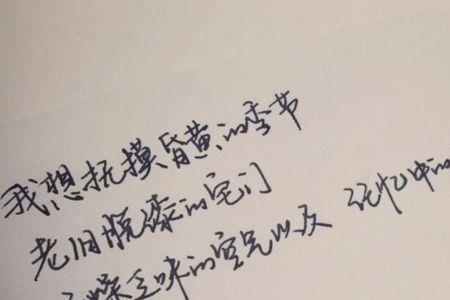 我想抚摸昏黄的季节
老旧脱漆的宅门
燥乏味的空气以及 记忆中的